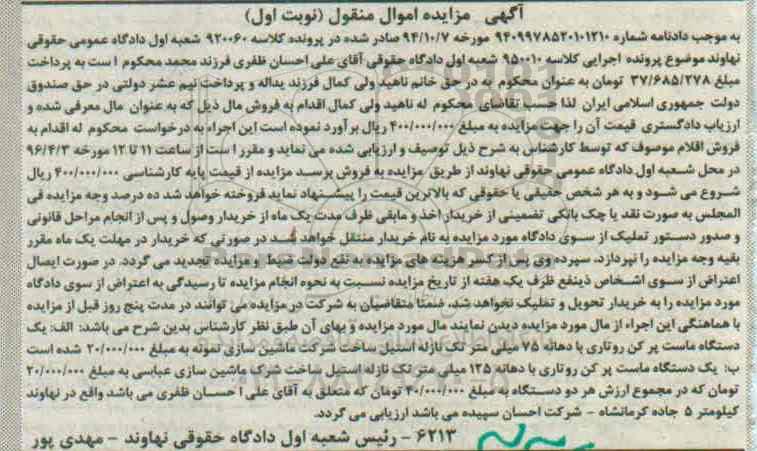 آگهی مزایده اموال منقول (نوبت اول)
به موجب دادنامه شماره ۹۴۰۹۹۷۸۵۲۰۱۰۱۲۱۰ مورخه ۹۴/۱۰/۷ صادر شده در پرونده کلاسه ۹۲۰۰۶۰ شعبه اول دادگاه عمومی حقوقی
نهاوند موضوع پرونده اجرایی کلاسه ۹۵۰۰۱۰ شعبه اول دادگاه حقوقی آقای علی احسان ظفری فرزند محمد محکوم ا ست به پرداخت
مبلغ ۳۷/۶۸۵/۲۷۸ تومان به عنوان محکوم به در حق خانم ناهید ولی کمال فرزند یداله و پرداخت نیم عشر دولتی در حق صندوق
دولت جمهوری اسلامی ایران لذا حسب تقاضای محکوم له ناهید ولی کمال اقدام به فروش مال ذیل که به عنوان مال معرفی شده و
ارزیاب دادگستری قیمت آن را جهت مزایده به مبلغ ۴۰۰/۰۰۰/۰۰۰ ریال بر آورد نموده است این اجراء به درخواست محکوم له اقدام به
فروش اقلام موصوف که توسط کارشناس به شرح ذیل توصیف و ارزیابی شده می نماید و مقرر ا ست از ساعت ۱۱ تا ۱۲ مورخه ۹۶/۴/۳
در محل شعبه اول دادگاه عمومی حقوقی نهاوند از طریق مزایده به فروش برسد مزایده از قیمت پایه کارشناسی ۴۰۰/۰۰۰/۰۰۰ ریال
شروع می شود و به هر شخص حقیقی یا حقوقی که بالاترین قیمت را پیشنهاد نماید فروخته خواهد شد ده درصد وجه مزایده فی
المجلس به صورت نقد یا چک بانکی تضمینی از خریدار اخذ و مابقی ظرف مدت یک ماه از خریدار وصول و پس از انجام مراحل قانونی
و صدور دستور تملیک از سوی دادگاه مورد مزایده به نام خریدار منتقل خواهد شد در صورتی که خریدار در مهلت یک ماه مقرر
بقیه وجه مزایده را نپردازد، سپرده وی پس از کسر هزینه های مزایده به نفع دولت ضبط و مزایده تجدید می گردد. در صورت ایصال
اعتراض از سوی اشخاص ذینفع ظرف یک هفته از تاریخ مزایده نسبت به نحوه انجام مزایده تا رسیدگی به اعتراض از سوی دادگاه
مورد مزایده را به خریدار تحویل و تملیک نخواهد شد، ضمنا متقاضیان به شرکت در مزایده می توانند در مدت پنج روز قبل از مزایده
با هماهنگی این اجراء از مال مورد مزایده دیدن نمایند مال مورد مزایده و بهای آن طبق نظر کارشناس بدین شرح می باشد: الف: یک
دستگاه ماست پر کن روتاری با دهانه ۷۵ میلی متر تک نازله استیل ساخت شرکت ماشین سازی نمونه به مبلغ ۲۰/۰۰۰/۰۰۰ شده است
ب: یک دستگاه ماست پر کن روتاری با دهانه ۱۲۵ میلی متر تک نازله استیل ساخت شرک ماشین سازی عباسی به مبلغ ۲۰/۰۰۰/۰۰۰
تومان که در مجموع ارزش هر دو دستگاه به مبلغ ۴۰/۰۰۰/۰۰۰ تومان که متعلق به آقای علی ا حسان ظفری می باشد واقع در نهاوند
کیلومتر ۵ جاده کرمانشاه - شرکت احسان سپیده می باشد ارزیابی می گردد.
۶۲۱۳ - رئیس شعبه اول دادگاه حقوقی نهاوند - مهدی پور